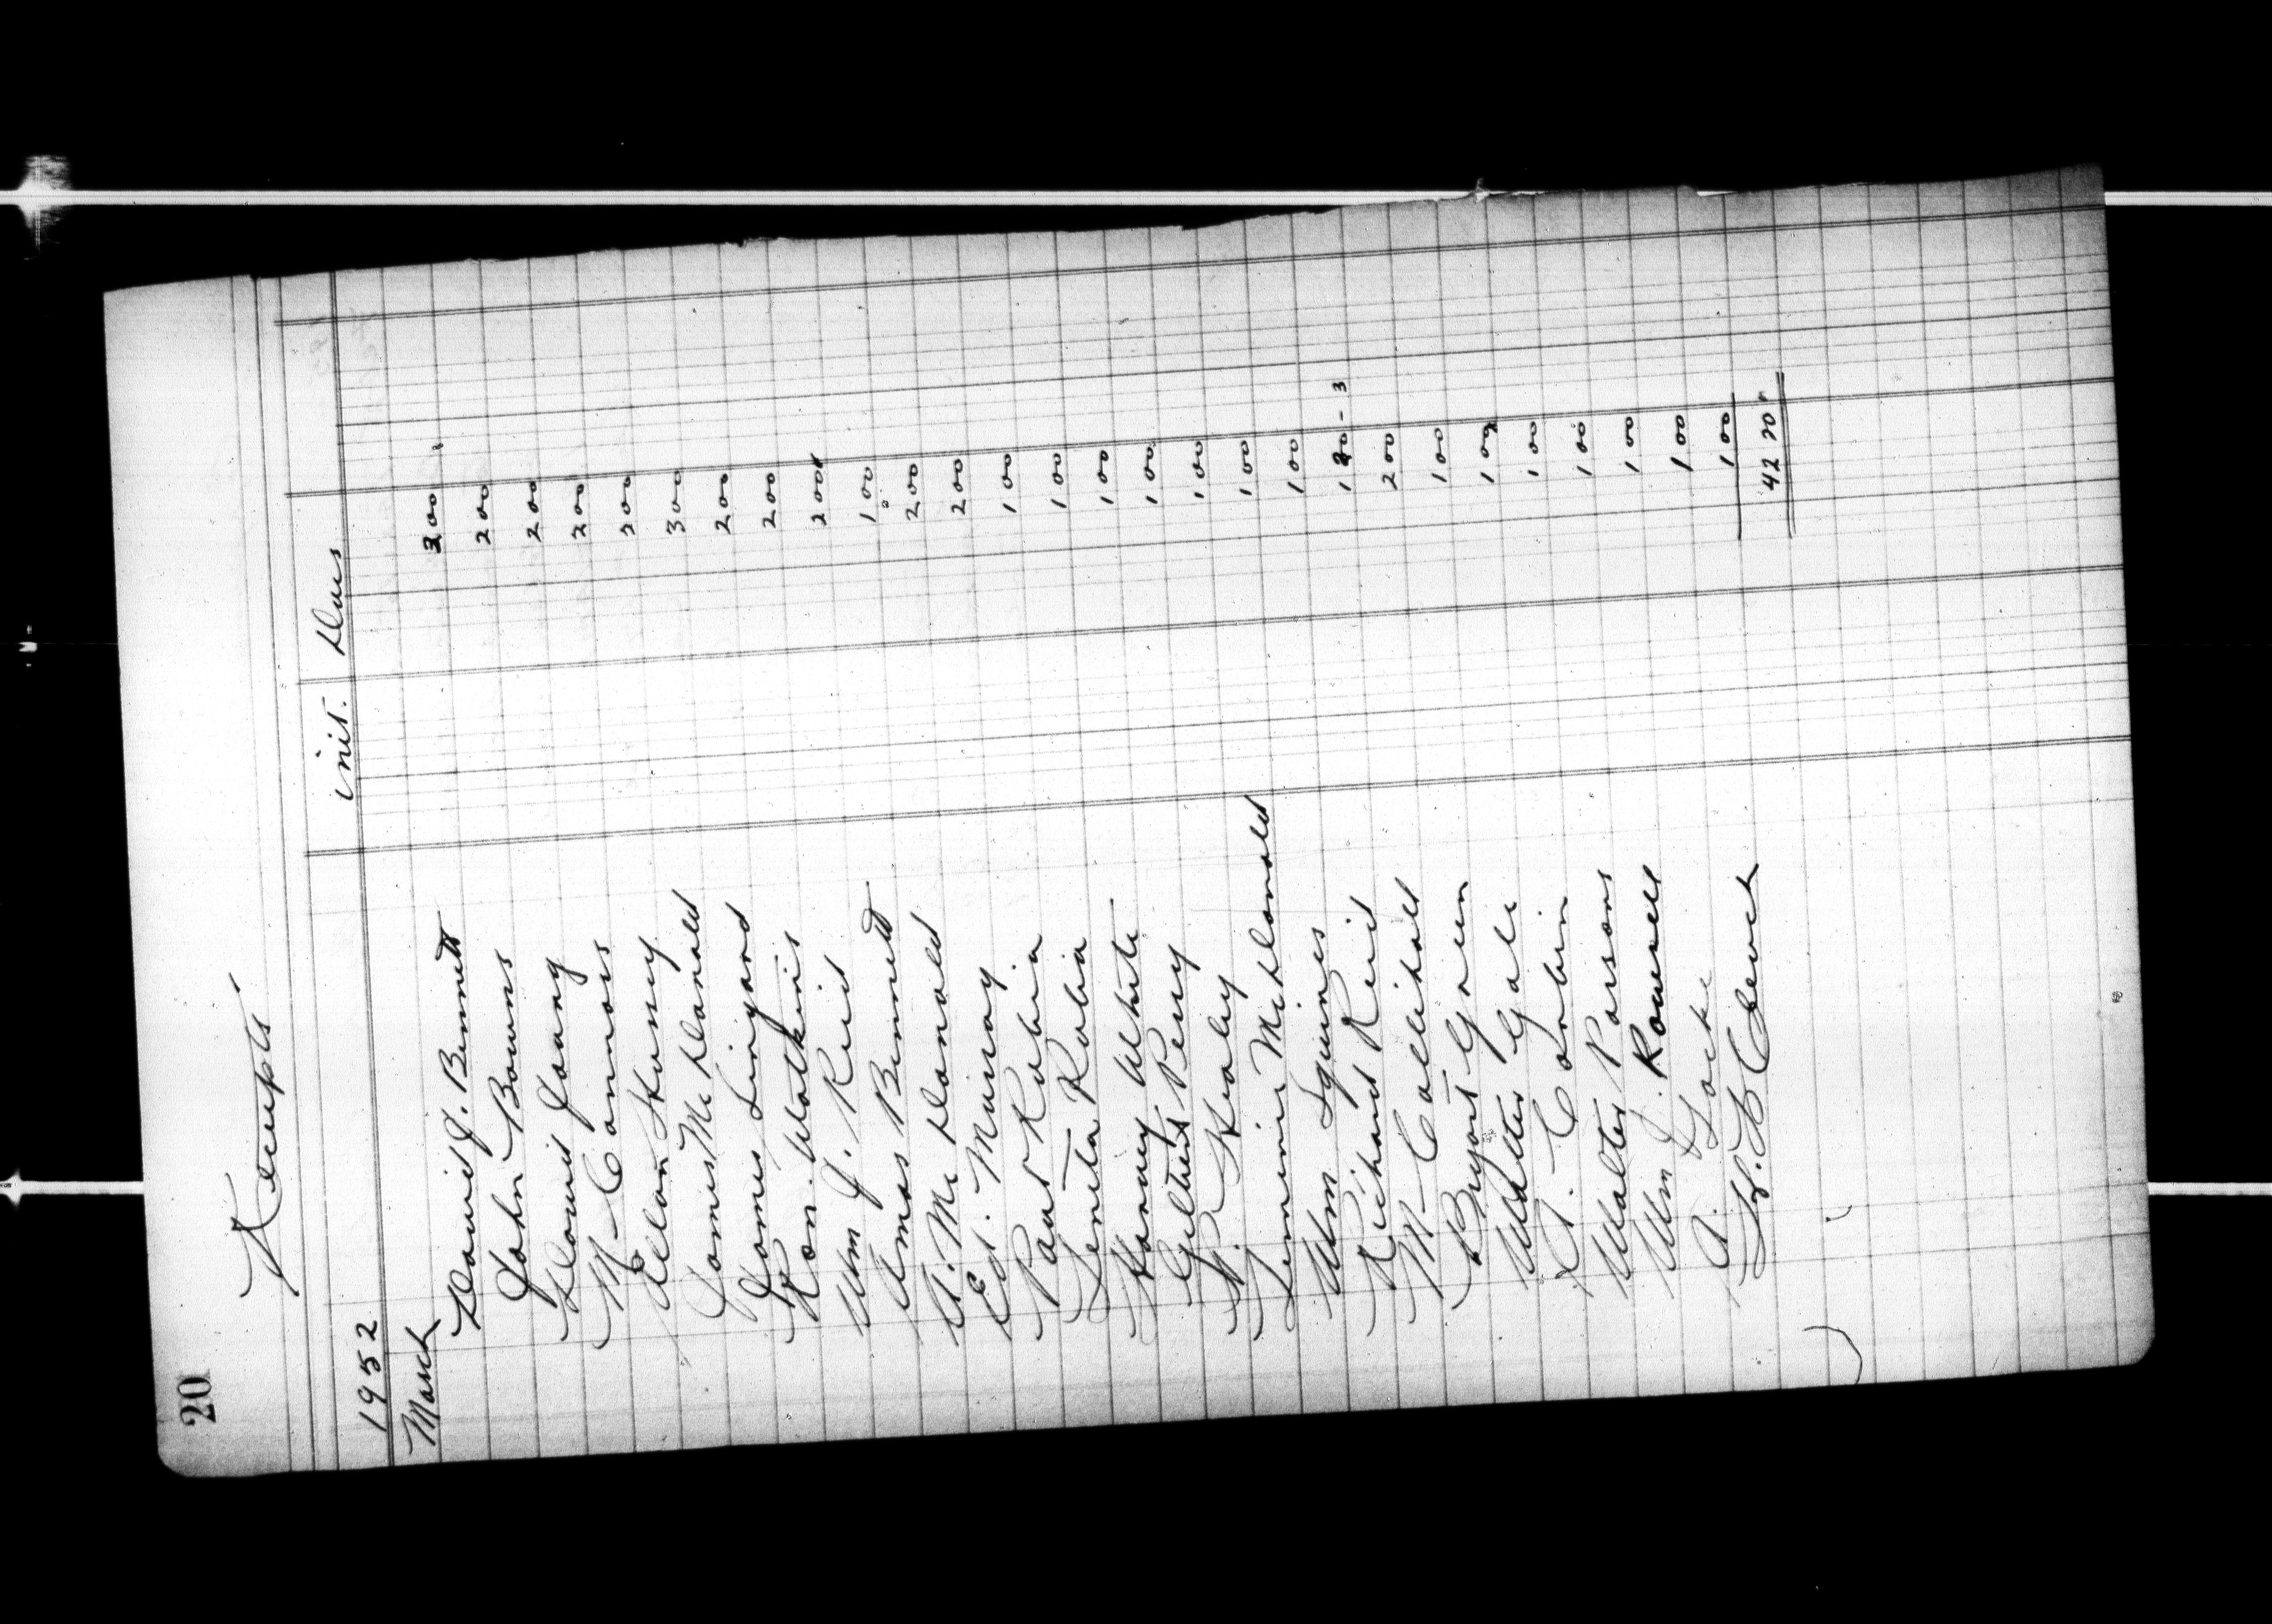 20
Receipts
1952 init. Dues
March
David J. Bennett 3 00
John Bowns 2 00
David Young 2 00
M- Connors 2 00
Allan Hussey 2 00
James McDonald 3 00
James Linyard 2 00
Ron. Watkins 2 00
Wm J. Reid 2 00
Amos Bennett 1 00
A. McDonald 2 00
Ed. Murray 2 00
Paul Robin 1 00
Robin 1 00
Harvey White 1 00
Gilbert Perry 1 00
P. Healey 1 00
McDonald 1 00
Wm Squires 1 00
Richard Reid 1 20 - 3
M- 2 00
Bryant Green 1 00
Walter Gale 1 00
A. Corbin 1 00
Walter Parsons 1 00
Wm J. Rowsell 1 00
A Locke 1 00
H. B 1 00
42 20